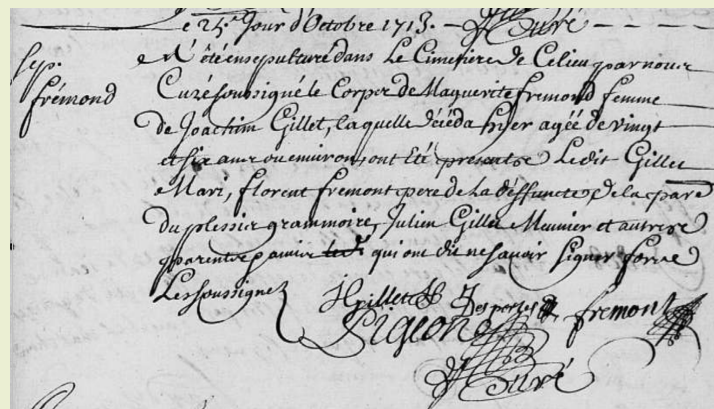 e 25.e Jour d'Octobre 1713.
Curé
Sep.
frémond
A été ensepulturé dans Le Cimetiere de Celieu par nous
Curé soussigné le Corps de Maguerite fremond femme
de Joachim Gillet, laquelle deceda hyer agée de vingt
et six ans ou environ, ont été presents Ledit Gillet
Mari, florent fremont pere de la deffuncte de la par
du plessis grammoire, Julien Gillet Meunier et autres
parents et amis qui ont dit ne savoir signer fors
Les soussignez
J Gillet
Desportes
fremont
Pigeon
Curé